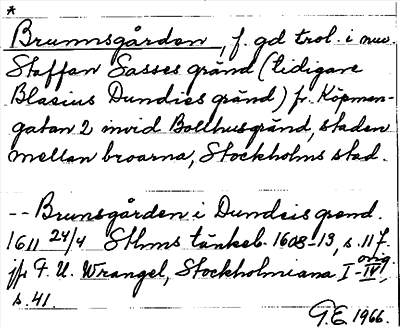 *
Brunnsgården, f. gd trol. i nuv.
Staffan Sasses gränd (tidigare
Blasius Dundies gränd) fr. Köpman-
gatan 2 invid Bollhusgränd, staden
mellan broarna, Stockholms stad.
-- Brunsgården i Dundeis grend.
1611 24/4 Sthms tänkeb. 1608-13, s. 117.
jfr F. U. Wrangel, Stockholmiana I-IV,
s. 41.
G.E. 1966.